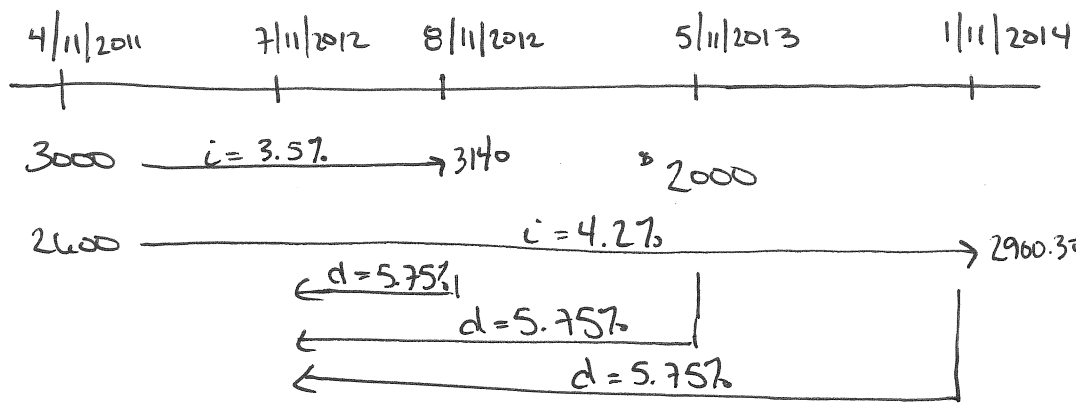 4/11/2011 7/11/2012 8/11/2012 5/11/2013 1/11/2014
3000 i = 3.5% 3140 $2000
2600 i = 4.2% 2960.3
d = 5.75%
d = 5.75%
d = 5.75%